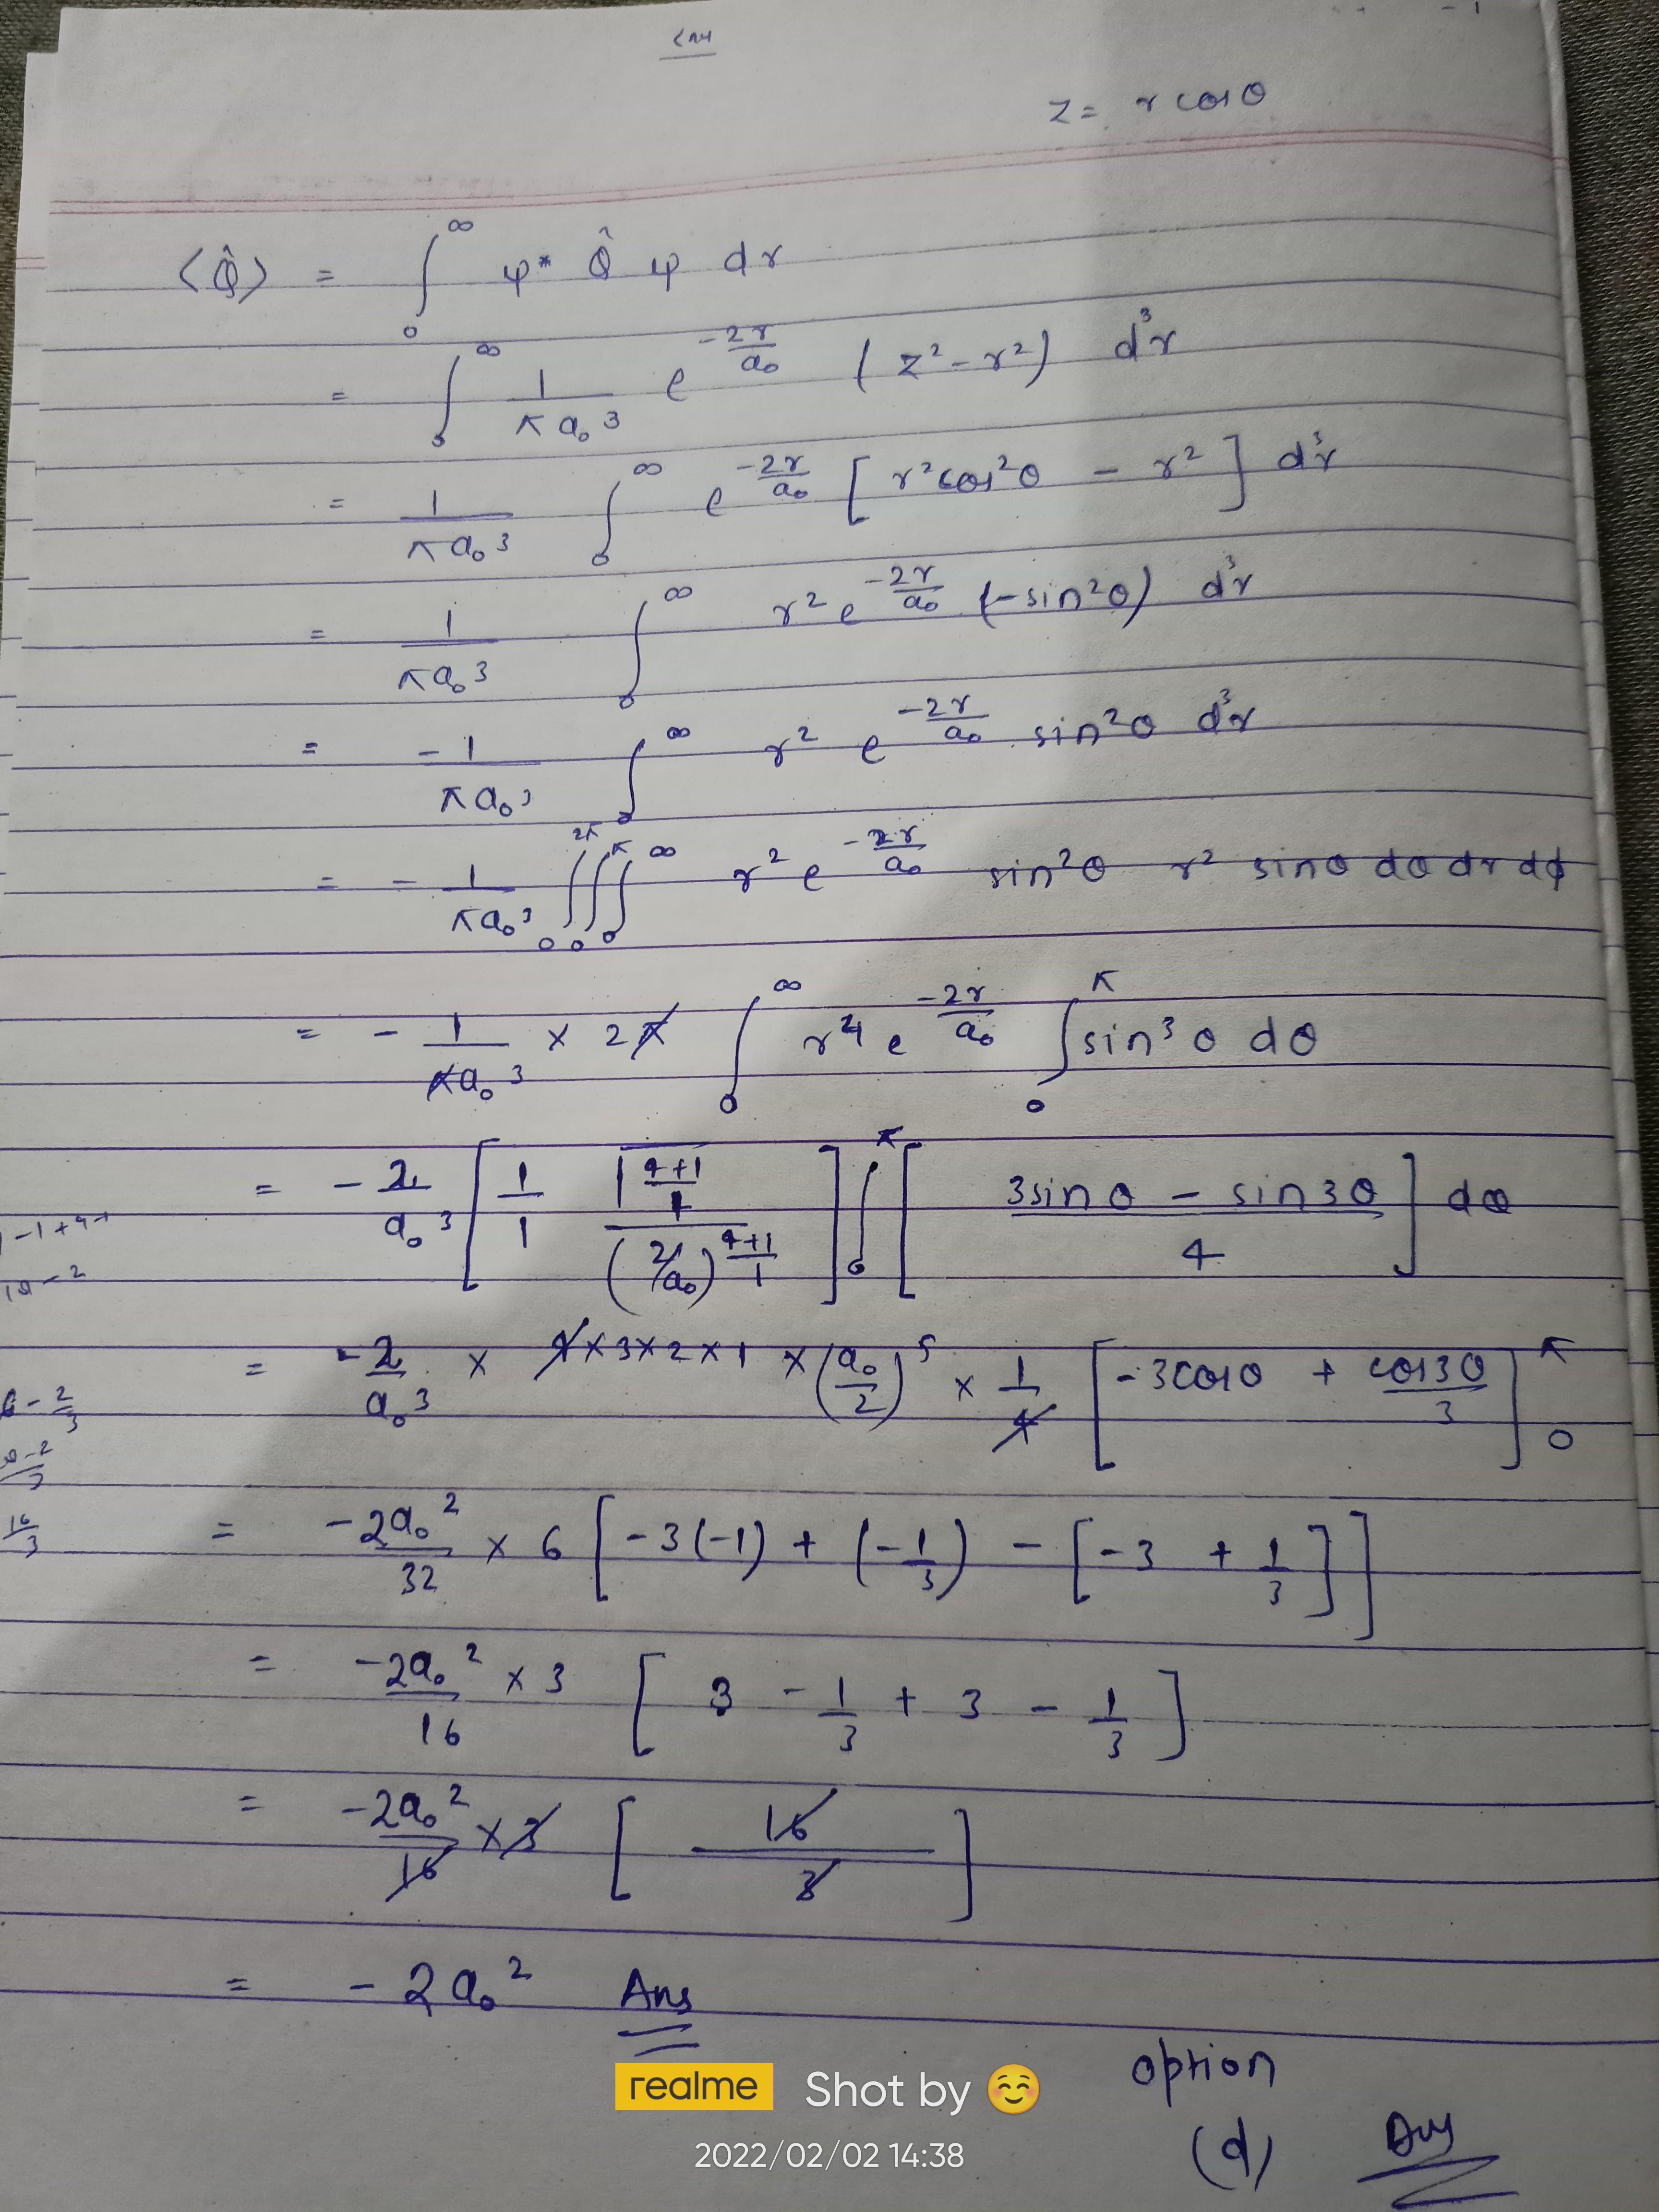 z = r cosθ
⟨Q̂⟩ = ∫₀^∞ ψ* Q̂ ψ dr
= ∫₀^∞ 1/(πa₀³) e^(-2r/a₀) (z² - r²) d³r
= 1/(πa₀³) ∫₀^∞ e^(-2r/a₀) [r²cos²θ - r²] d³r
= 1/(πa₀³) ∫₀^∞ r² e^(-2r/a₀) (-sin²θ) d³r
= -1/(πa₀³) ∫₀^∞ r² e^(-2r/a₀) sin²θ d³r
= - 1/(πa₀³) ∫₀^2π ∫₀^π ∫₀^∞ r² e^(-2r/a₀) sin²θ r² sinθ dθ dr dφ
= - 1/(πa₀³) × 2π ∫₀^∞ r⁴ e^(-2r/a₀) ∫₀^π sin³θ dθ
= - 2/a₀³ [1/1 Γ((4+1)/1) / (2/a₀)^((4+1)/1)] ∫₀^π [(3sinθ - sin3θ)/4] dθ
= -2/a₀³ × 4×3×2×1 × (a₀/2)⁵ × 1/4 [-3cosθ + cos3θ/3]₀^π
= -2a₀²/32 × 6 [-3(-1) + (-1/3) - [-3 + 1/3]]
16/3
= -2a₀²/16 × 3 [3 - 1/3 + 3 - 1/3]
= -2a₀²/16 × 3 [16/3]
= - 2a₀² Ans
option
(d) Ans
realme Shot by 😊
2022/02/02 14:38